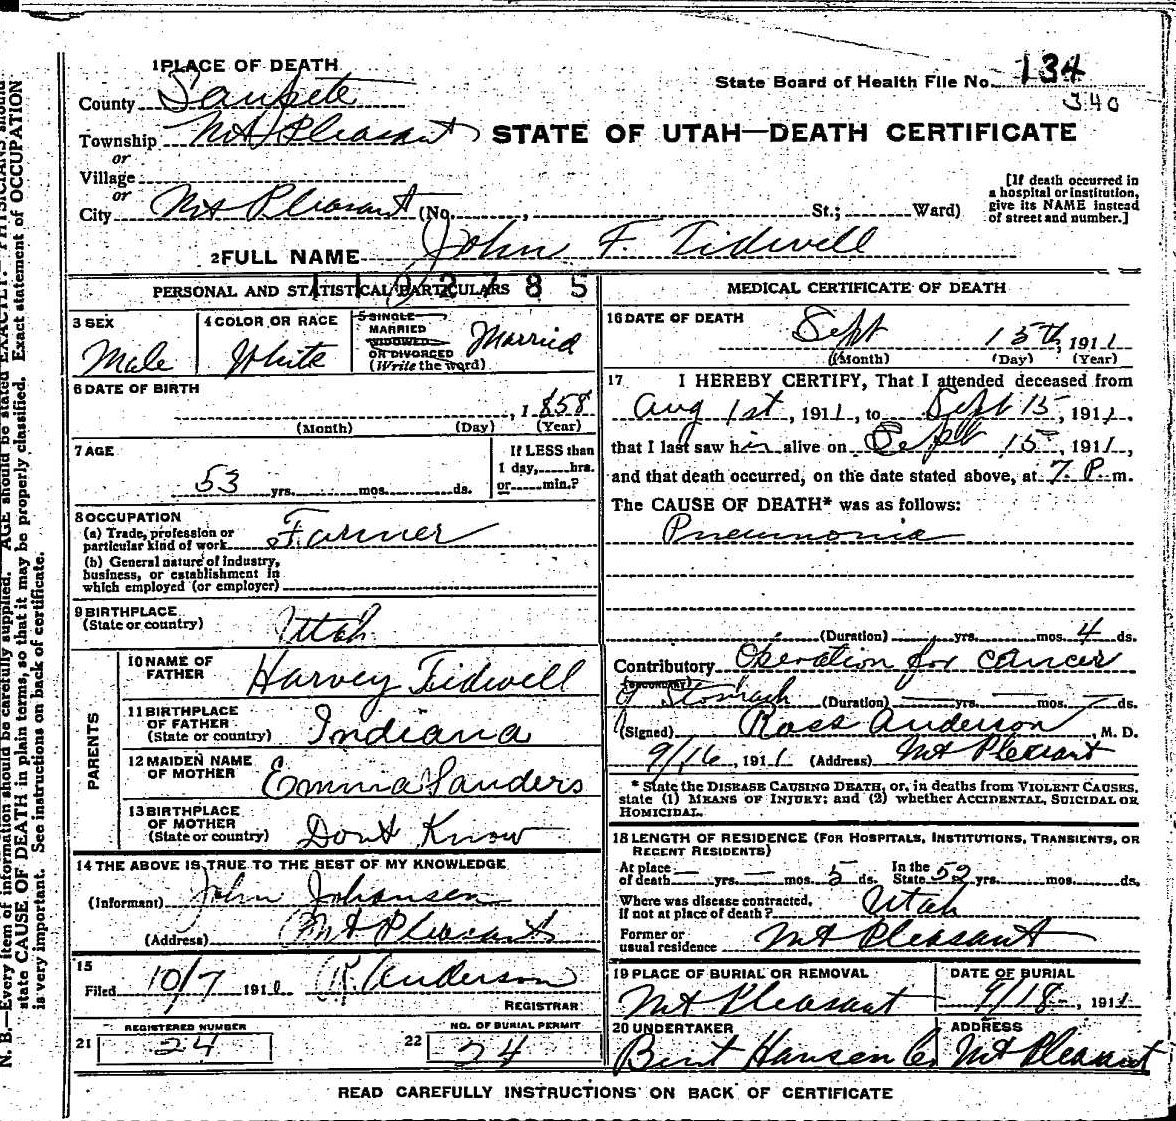 1 PLACE OF DEATH
State Board of Health File No. 134
340
County Sanpete
Township Mt Pleasant
STATE OF UTAH—DEATH CERTIFICATE
or
Village
or
City Mt Pleasant (No. , St.; Ward)
[If death occurred in a hospital or institution, give its NAME instead of street and number.]
2 FULL NAME John F. Tidwell
PERSONAL AND STATISTICAL PARTICULARS
3 SEX
Male
4 COLOR OR RACE
White
5 SINGLE
MARRIED
WIDOWED
OR DIVORCED
(Write the word)
Married
6 DATE OF BIRTH
, 1858
(Month) (Day) (Year)
7 AGE
53 yrs. mos. ds.
If LESS than
1 day, hrs.
or min.?
8 OCCUPATION
(a) Trade, profession or
particular kind of work Farmer
(b) General nature of industry,
business, or establishment in
which employed (or employer)
9 BIRTHPLACE
(State or country) Utah
PARENTS
10 NAME OF
FATHER Harvey Tidwell
11 BIRTHPLACE
OF FATHER
(State or country) Indiana
12 MAIDEN NAME
OF MOTHER Emma Sanders
13 BIRTHPLACE
OF MOTHER
(State or country) Dont Know
14 THE ABOVE IS TRUE TO THE BEST OF MY KNOWLEDGE
(Informant) John Johansen
(Address) Mt Pleasant
15
Filed 10/7 191 R. Anderson
REGISTRAR
REGISTERED NUMBER
21 24
NO. OF BURIAL PERMIT
22 24
MEDICAL CERTIFICATE OF DEATH
16 DATE OF DEATH
Sept 15th, 1911
(Month) (Day) (Year)
17 I HEREBY CERTIFY, That I attended deceased from
Aug 1st, 1911, to Sept 15, 1911,
that I last saw him alive on Sept 15, 1911,
and that death occurred, on the date stated above, at 7 P. m.
The CAUSE OF DEATH* was as follows:
Pneumonia
(Duration) yrs. mos. 4 ds.
Contributory Operation for cancer
(SECONDARY)
of Stomach (Duration) yrs. mos. ds.
(Signed) Ross Anderson, M. D.
9/16, 1911 (Address) Mt Pleasant
* State the DISEASE CAUSING DEATH, or, in deaths from VIOLENT CAUSES,
state (1) MEANS OF INJURY; and (2) whether ACCIDENTAL, SUICIDAL OR
HOMICIDAL.
18 LENGTH OF RESIDENCE (FOR HOSPITALS, INSTITUTIONS, TRANSIENTS, OR
RECENT RESIDENTS)
At place
of death — yrs. — mos. 5 ds. In the
State 52 yrs. mos. ds.
Where was disease contracted,
If not at place of death? Utah
Former or
usual residence Mt Pleasant
19 PLACE OF BURIAL OR REMOVAL
Mt Pleasant
DATE OF BURIAL
9/18, 1911
20 UNDERTAKER
Bent Hansen Co
ADDRESS
Mt Pleasant
READ CAREFULLY INSTRUCTIONS ON BACK OF CERTIFICATE
N. B.—Every item of information should be carefully supplied. AGE should be stated EXACTLY. PHYSICIANS should
state CAUSE OF DEATH in plain terms, so that it may be properly classified. Exact statement of OCCUPATION
is very important. See instructions on back of certificate.